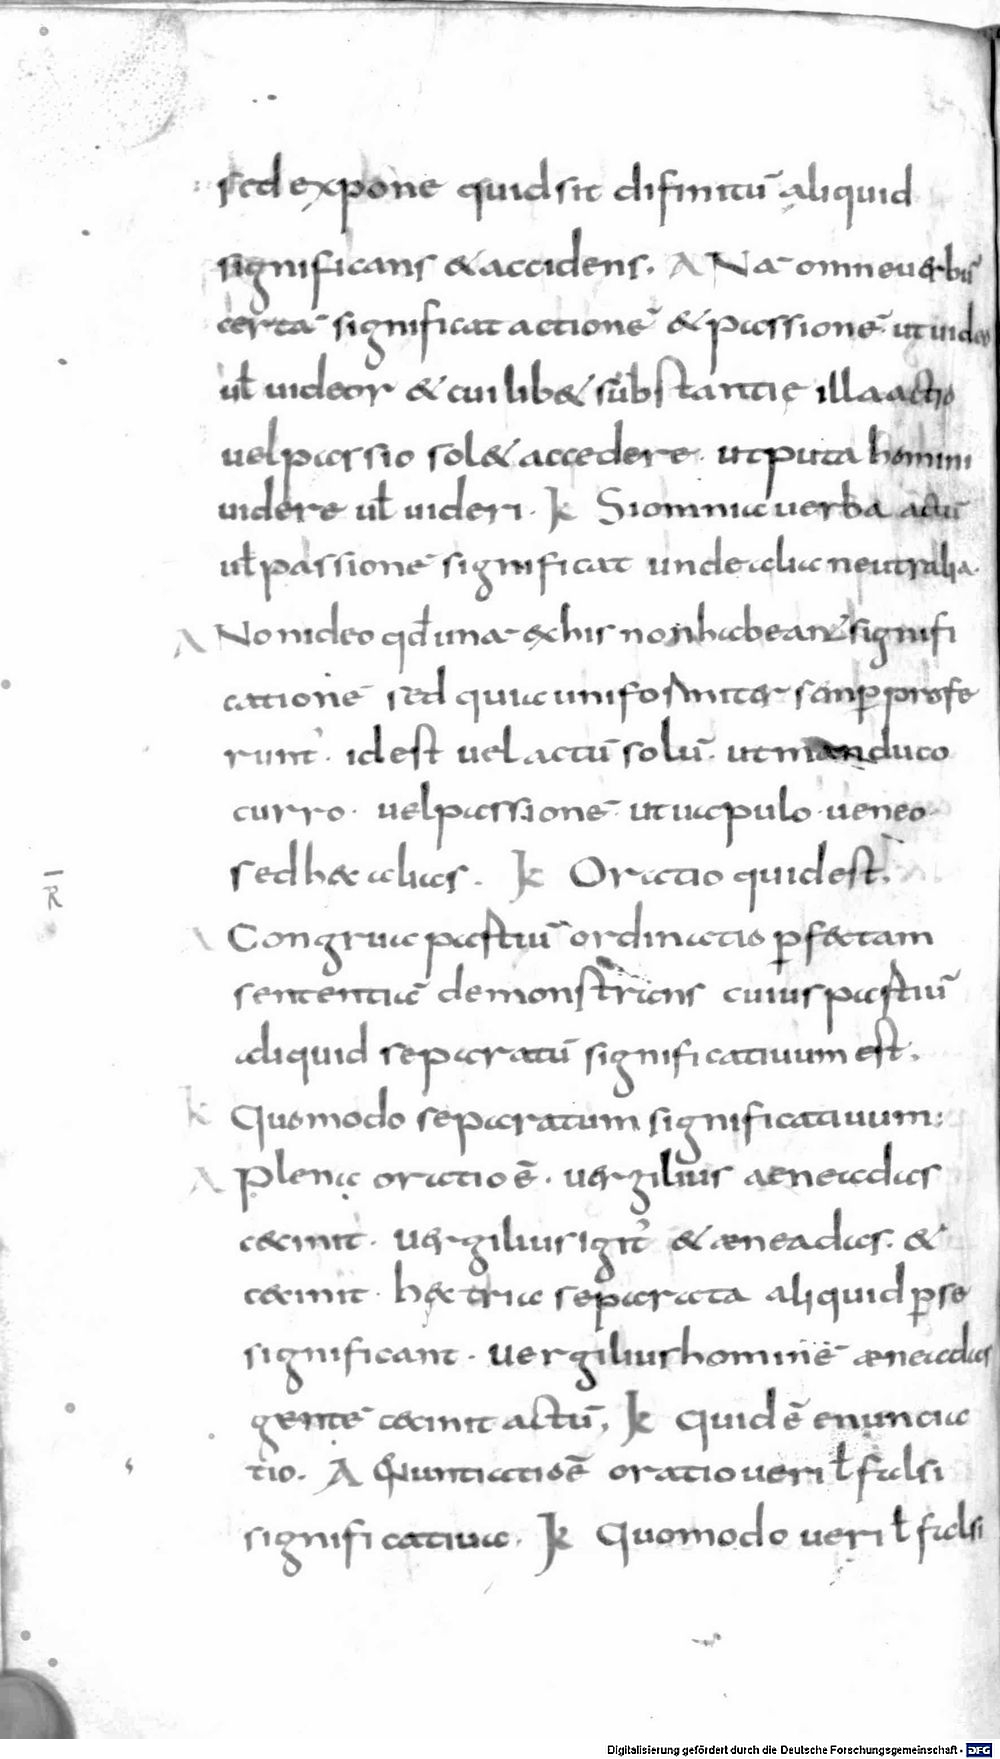 sed expone quid sit difinitū aliquid
significans & accidens. A Nā omne uerbū
certā significat actionē & passionē ut uideo
uł uideor & cui lib& substantię illa actio
uel passio sol& accedere. ut puta homini
uidere uł uideri. k Si omnia uerba actū
uł passionē significat unde alia neutralia.
A Non ideo qđ unā ex his non habeant signifi
cationē sed quia uniformiter semꝑ profe
runt̉. id est uel actū solū. ut manduco
curro. uel passionē ut uapulo. ueneo
sed hęc alias. k Oratio quid est.
R̄
A Congrua partiū ordinatio ꝑfectam
sententiā demonstrans cuius partiū
aliquid separatū significatiuum est.
k Quomodo separatum significatiuum:
A Plena oratio ē. uergilius aeneadas
cecinit. uergilius igit̉ & æneadas. &
cecinit. hęc tria separata aliquid ꝑ se
significant. uergilius hominē æneadas
gentē cecinit actū, k quid ē enuncia
tio. A Enuntiatio ē oratio ueri ł falsi
significatiua. k Quomodo ueri ł falsi
Digitalisierung gefördert durch die Deutsche Forschungsgemeinschaft - DFG